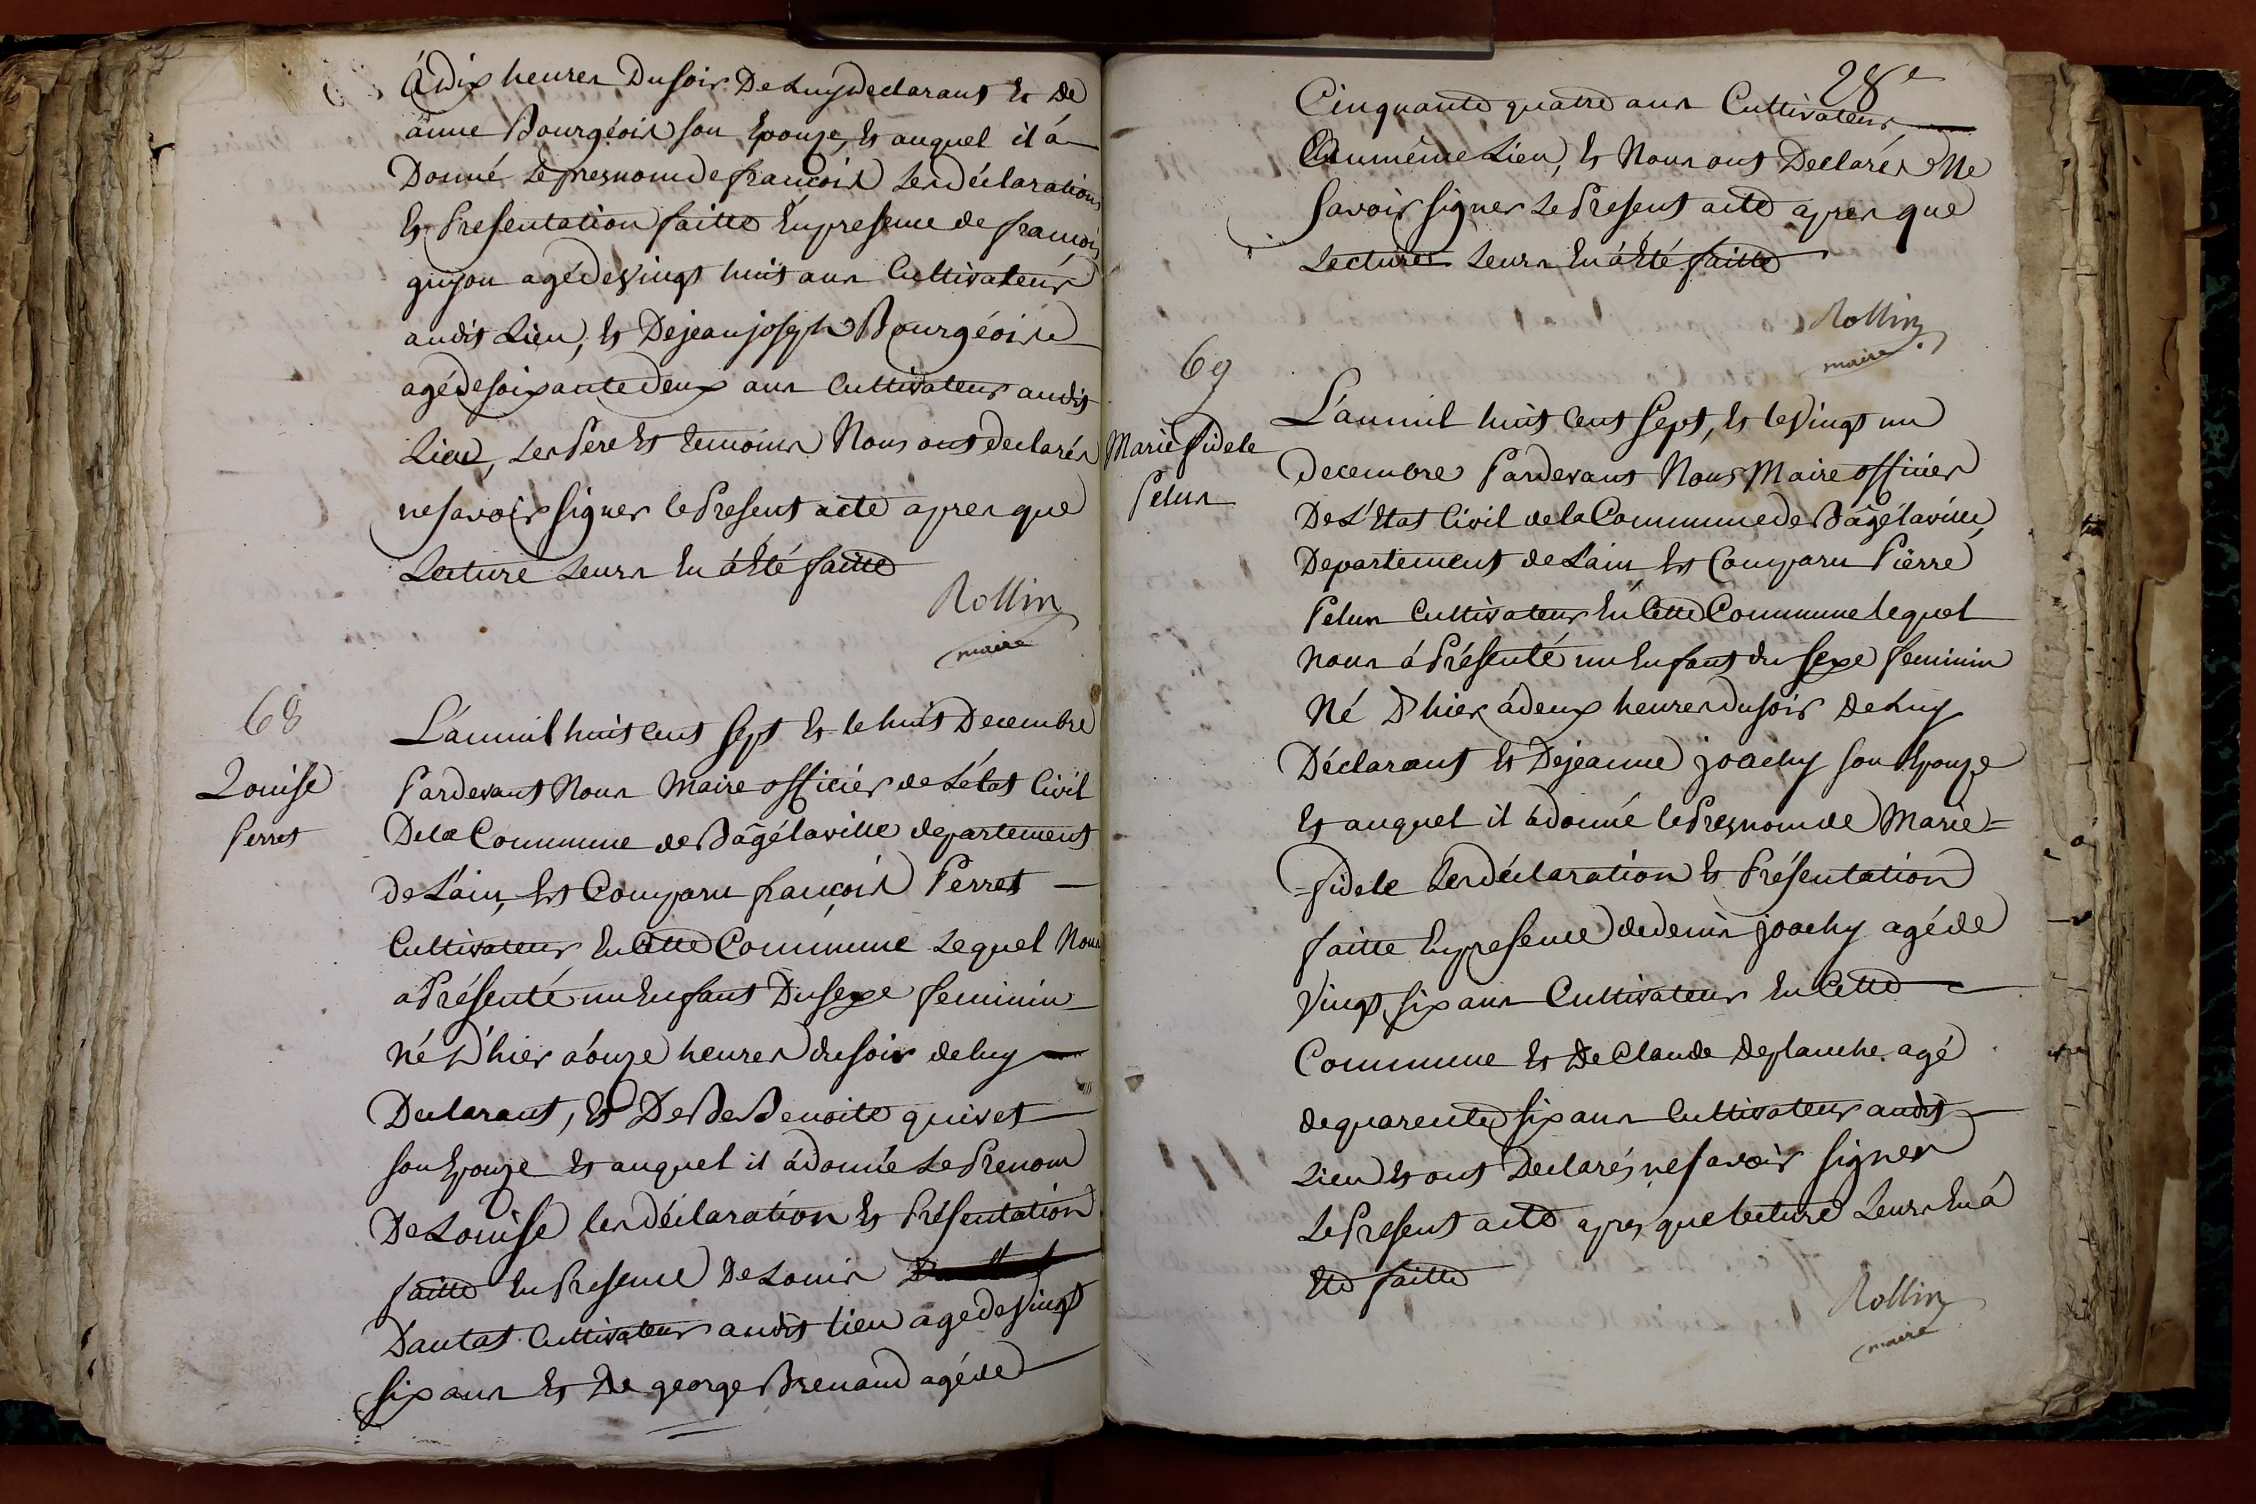 à dix heures Du soir De Luy Declarant Et De
anne Bourgeois son Epouze, Et auquel il á
Donné Le presnom de françois Les déclaration
Et Présentation faitte En presence de françois
guyon agé De vingt huit ans Cultivateur
audit Lieu, Et De jean joseph Bourgéois
agé de soixante deux ans Cultivateur audit
Lieu, Les Pere Et temoins Nous ont declarés
ne savoir signer le Present acte apres que
Lecture Leurs En á Eté faitte
Rollin
maire
68
Louise
Perret
L'an mil huit cent sept Et le huit Decembre
Pardevant Nous Maire officier de L'état Civil
De la Commune de Bâgélaville departement
de L'ain, Est Comparu françois Perret
Cultivateur En Cette Commune Lequel Nous
a Présenté un Enfant Du sexe feminin
né D'hier á onze heures du soir de luy
Declarant, Et De De Benoite quivet
son Epouze Et auquel il á donné Le Prenom
De Louise les déclaration Et Présentation
faitte En Presence De Louis
Dautat Cultivateur audit lieu agé de vingt
six ans Et De george Brenaud agé de
28e
Cinquante quatre ans Cultivateur
Au même Lieu, Et Nous ont Declarés Ne
savoir signer Le Present acte apres que
Lecture Leurs En á Eté faitte
Rollin
maire
69
Marie fidele
Pelus
L'an mil huit Cent sept, Et le vingt un
decembre Pardevant Nous Maire officier
De L'Etat Civil de la Commune de Bâgélaville
Departement de L'ain Est Comparu Pierre
Pelus Cultivateur En Cette Commune lequel
nous á Présenté un Enfant du sexe feminin
Né D'hier á deux heures du soir De Luy
Déclarant Et De jeanne joachy son Epouze
Et auquel il á donné le Presnom de Marie=
=fidele Les déclaration Et Présentation
faitte En presence de denis joachy agé de
Vingt six ans Cultivateur En Cette
Commune Et De Claude Deplanche agé
de quarente six ans Cultivateur audit
Lieu Et ont Declarés ne savoir signer
Le Present acte apres que lecture Leurs En á
Eté faitte
Rollin
maire